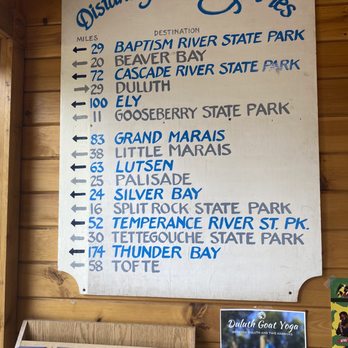 MILES DESTINATION
← 29 BAPTISM RIVER STATE PARK
← 20 BEAVER BAY
← 72 CASCADE RIVER STATE PARK
→ 29 DULUTH
← 100 ELY
← 11 GOOSEBERRY STATE PARK
← 83 GRAND MARAIS
← 38 LITTLE MARAIS
← 63 LUTSEN
← 25 PALISADE
← 24 SILVER BAY
← 16 SPLIT ROCK STATE PARK
← 52 TEMPERANCE RIVER ST. PK.
← 30 TETTEGOUCHE STATE PARK
← 174 THUNDER BAY
← 58 TOFTE
Duluth Goat Yoga